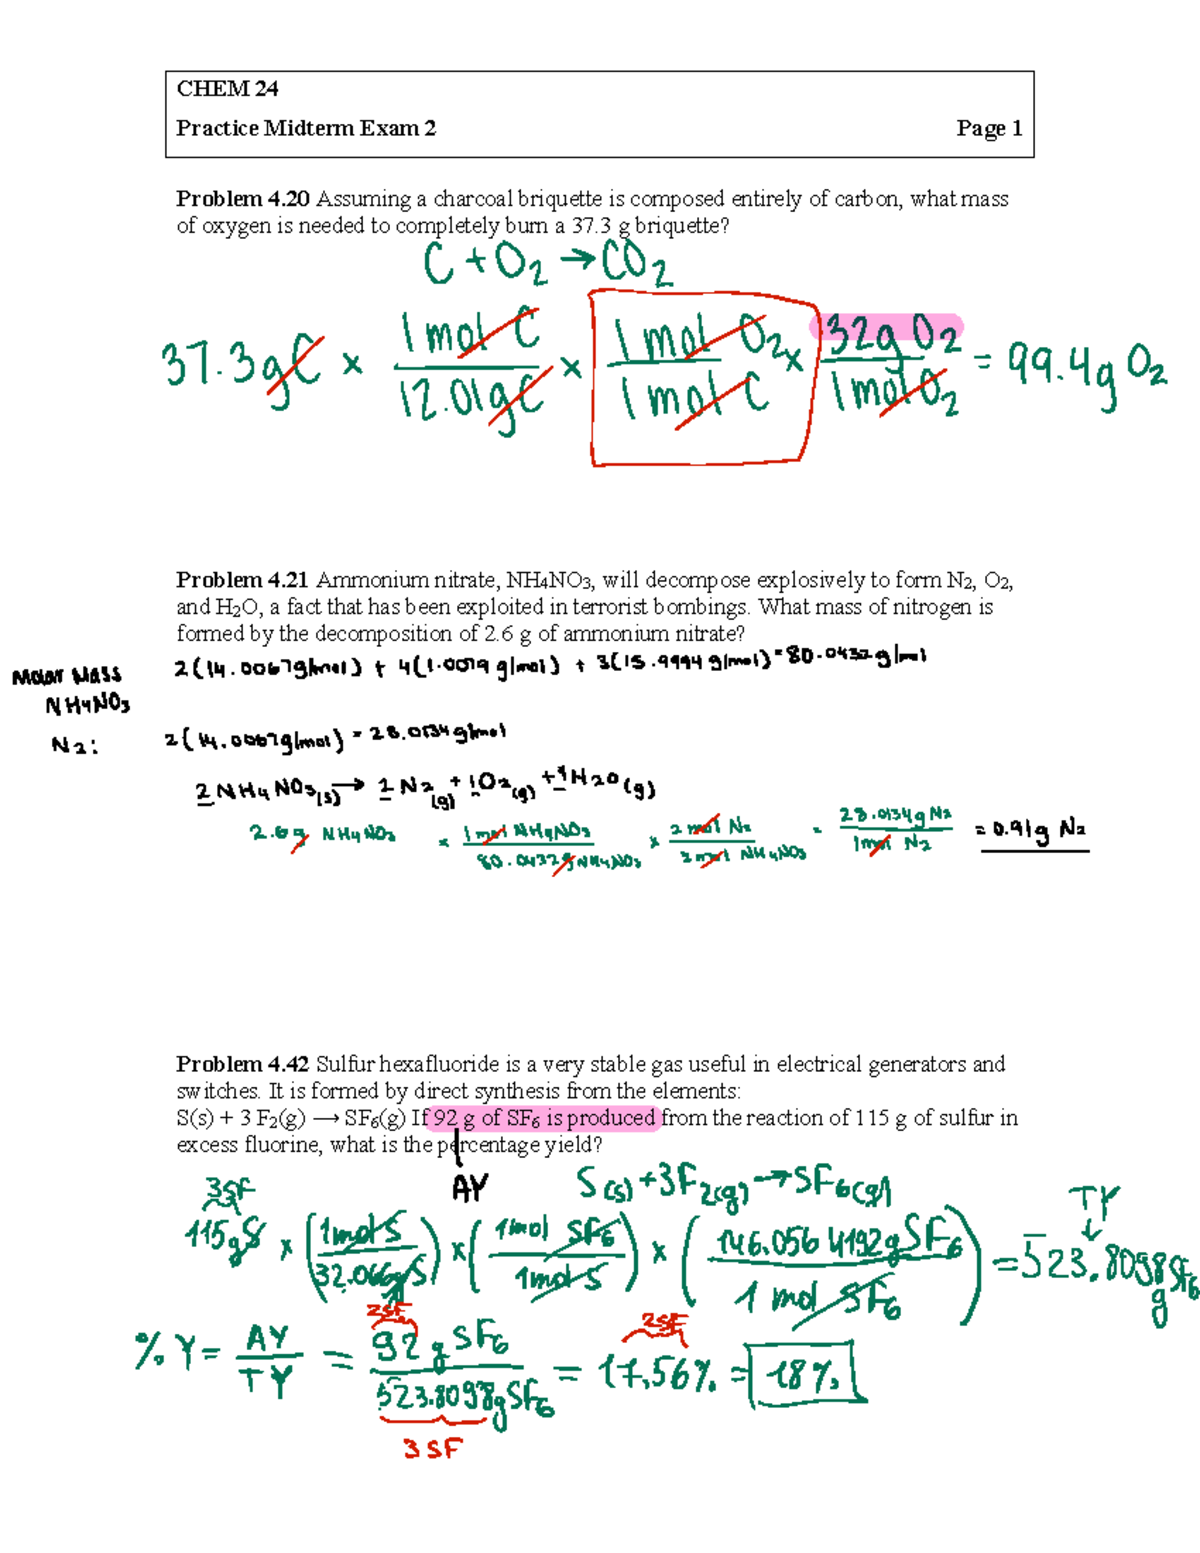 CHEM 24
Practice Midterm Exam 2 Page 1
Problem 4.20 Assuming a charcoal briquette is composed entirely of carbon, what mass
of oxygen is needed to completely burn a 37.3 g briquette?
C + O2 → CO2
37.3gC × 1 mol C / 12.01gC × 1 mol O2 / 1 mol C × 32g O2 / 1 mol O2 = 99.4g O2
Problem 4.21 Ammonium nitrate, NH4NO3, will decompose explosively to form N2, O2,
and H2O, a fact that has been exploited in terrorist bombings. What mass of nitrogen is
formed by the decomposition of 2.6 g of ammonium nitrate?
Molar Mass NH4NO3 2(14.0067g/mol) + 4(1.0079 g/mol) + 3(15.9994 g/mol) = 80.0432 g/mol
N2: 2(14.0067g/mol) = 28.0134g/mol
2 NH4NO3(s) → 2 N2(g) + 1O2(g) + 4H2O(g)
2.6g NH4NO3 × 1 mol NH4NO3 / 80.0432 g NH4NO3 × 2 mol N2 / 2 mol NH4NO3 = 28.0134g N2 / 1 mol N2 = 0.91g N2
Problem 4.42 Sulfur hexafluoride is a very stable gas useful in electrical generators and
switches. It is formed by direct synthesis from the elements:
S(s) + 3 F2(g) ⟶ SF6(g) If 92 g of SF6 is produced from the reaction of 115 g of sulfur in
excess fluorine, what is the percentage yield?
AY
S(s) + 3F2(g) → SF6(g)
3SF
TY
115gS × (1mol S / 32.066g S) × (1mol SF6 / 1mol S) × (146.0564192g SF6 / 1 mol SF6) = 523.8098g SF6
2SF
2SF
% Y = AY / TY = 92g SF6 / 523.8098g SF6 = 17.56% = 18%
3 SF